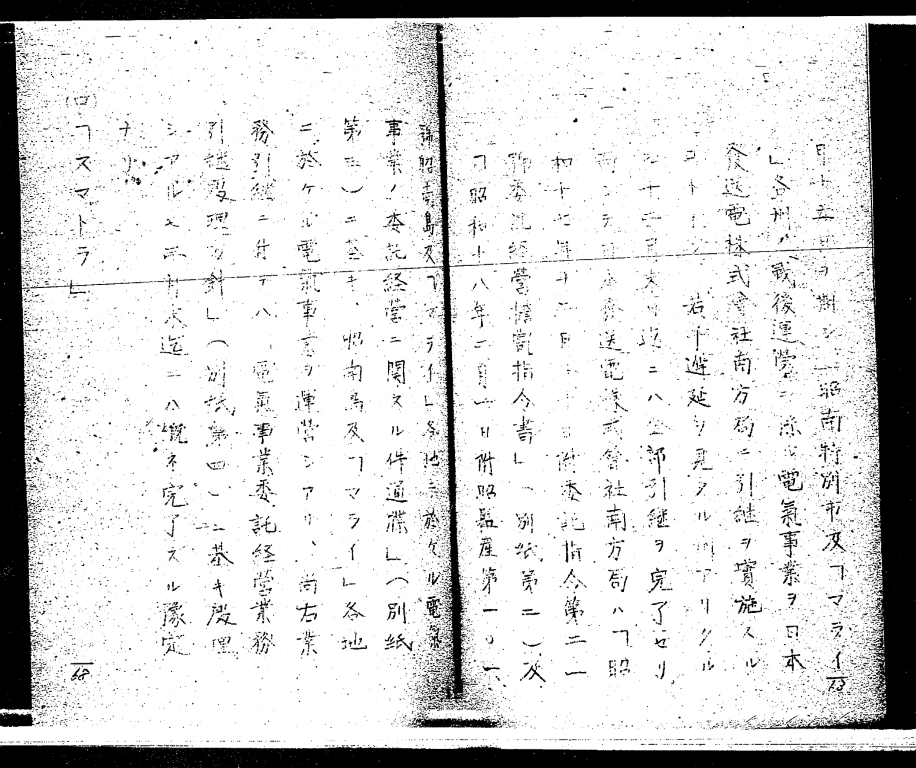 月十五日ヲ期シ、昭南特別市及「マライ
」各州ハ戦後運営ニ係ル電氣事業ヲ日本
發送電株式會社南方局ニ引継ヲ實施スル
コトトシ 若干遅延ヲ見タル州アリタル
十二月末日迄ニハ全部引継ヲ完了セリ
而シテ日本發送電株式會社南方局ハ「昭
和十七年十二月 日附委託指令第二一
號委託経営 指令書」(別紙第二)及
「昭和十八年二月一日附昭馬産第一〇一
號昭南島及「マライ」各地ニ於ケル電氣
事業ノ委託経営ニ関スル件通牒」(別紙
第三)ニ基キ、昭南島及「マライ」各地
ニ於ケル電氣事業ヲ運営シアリ、尚右業
務引継ニ付テハ、電氣事業委託経営業務
引継処理方針」(別紙第四)ニ基キ處理
シアルモ三月末迄ニハ概ネ完了スル豫定
ナリ
(ロ)「スマトラ」
68